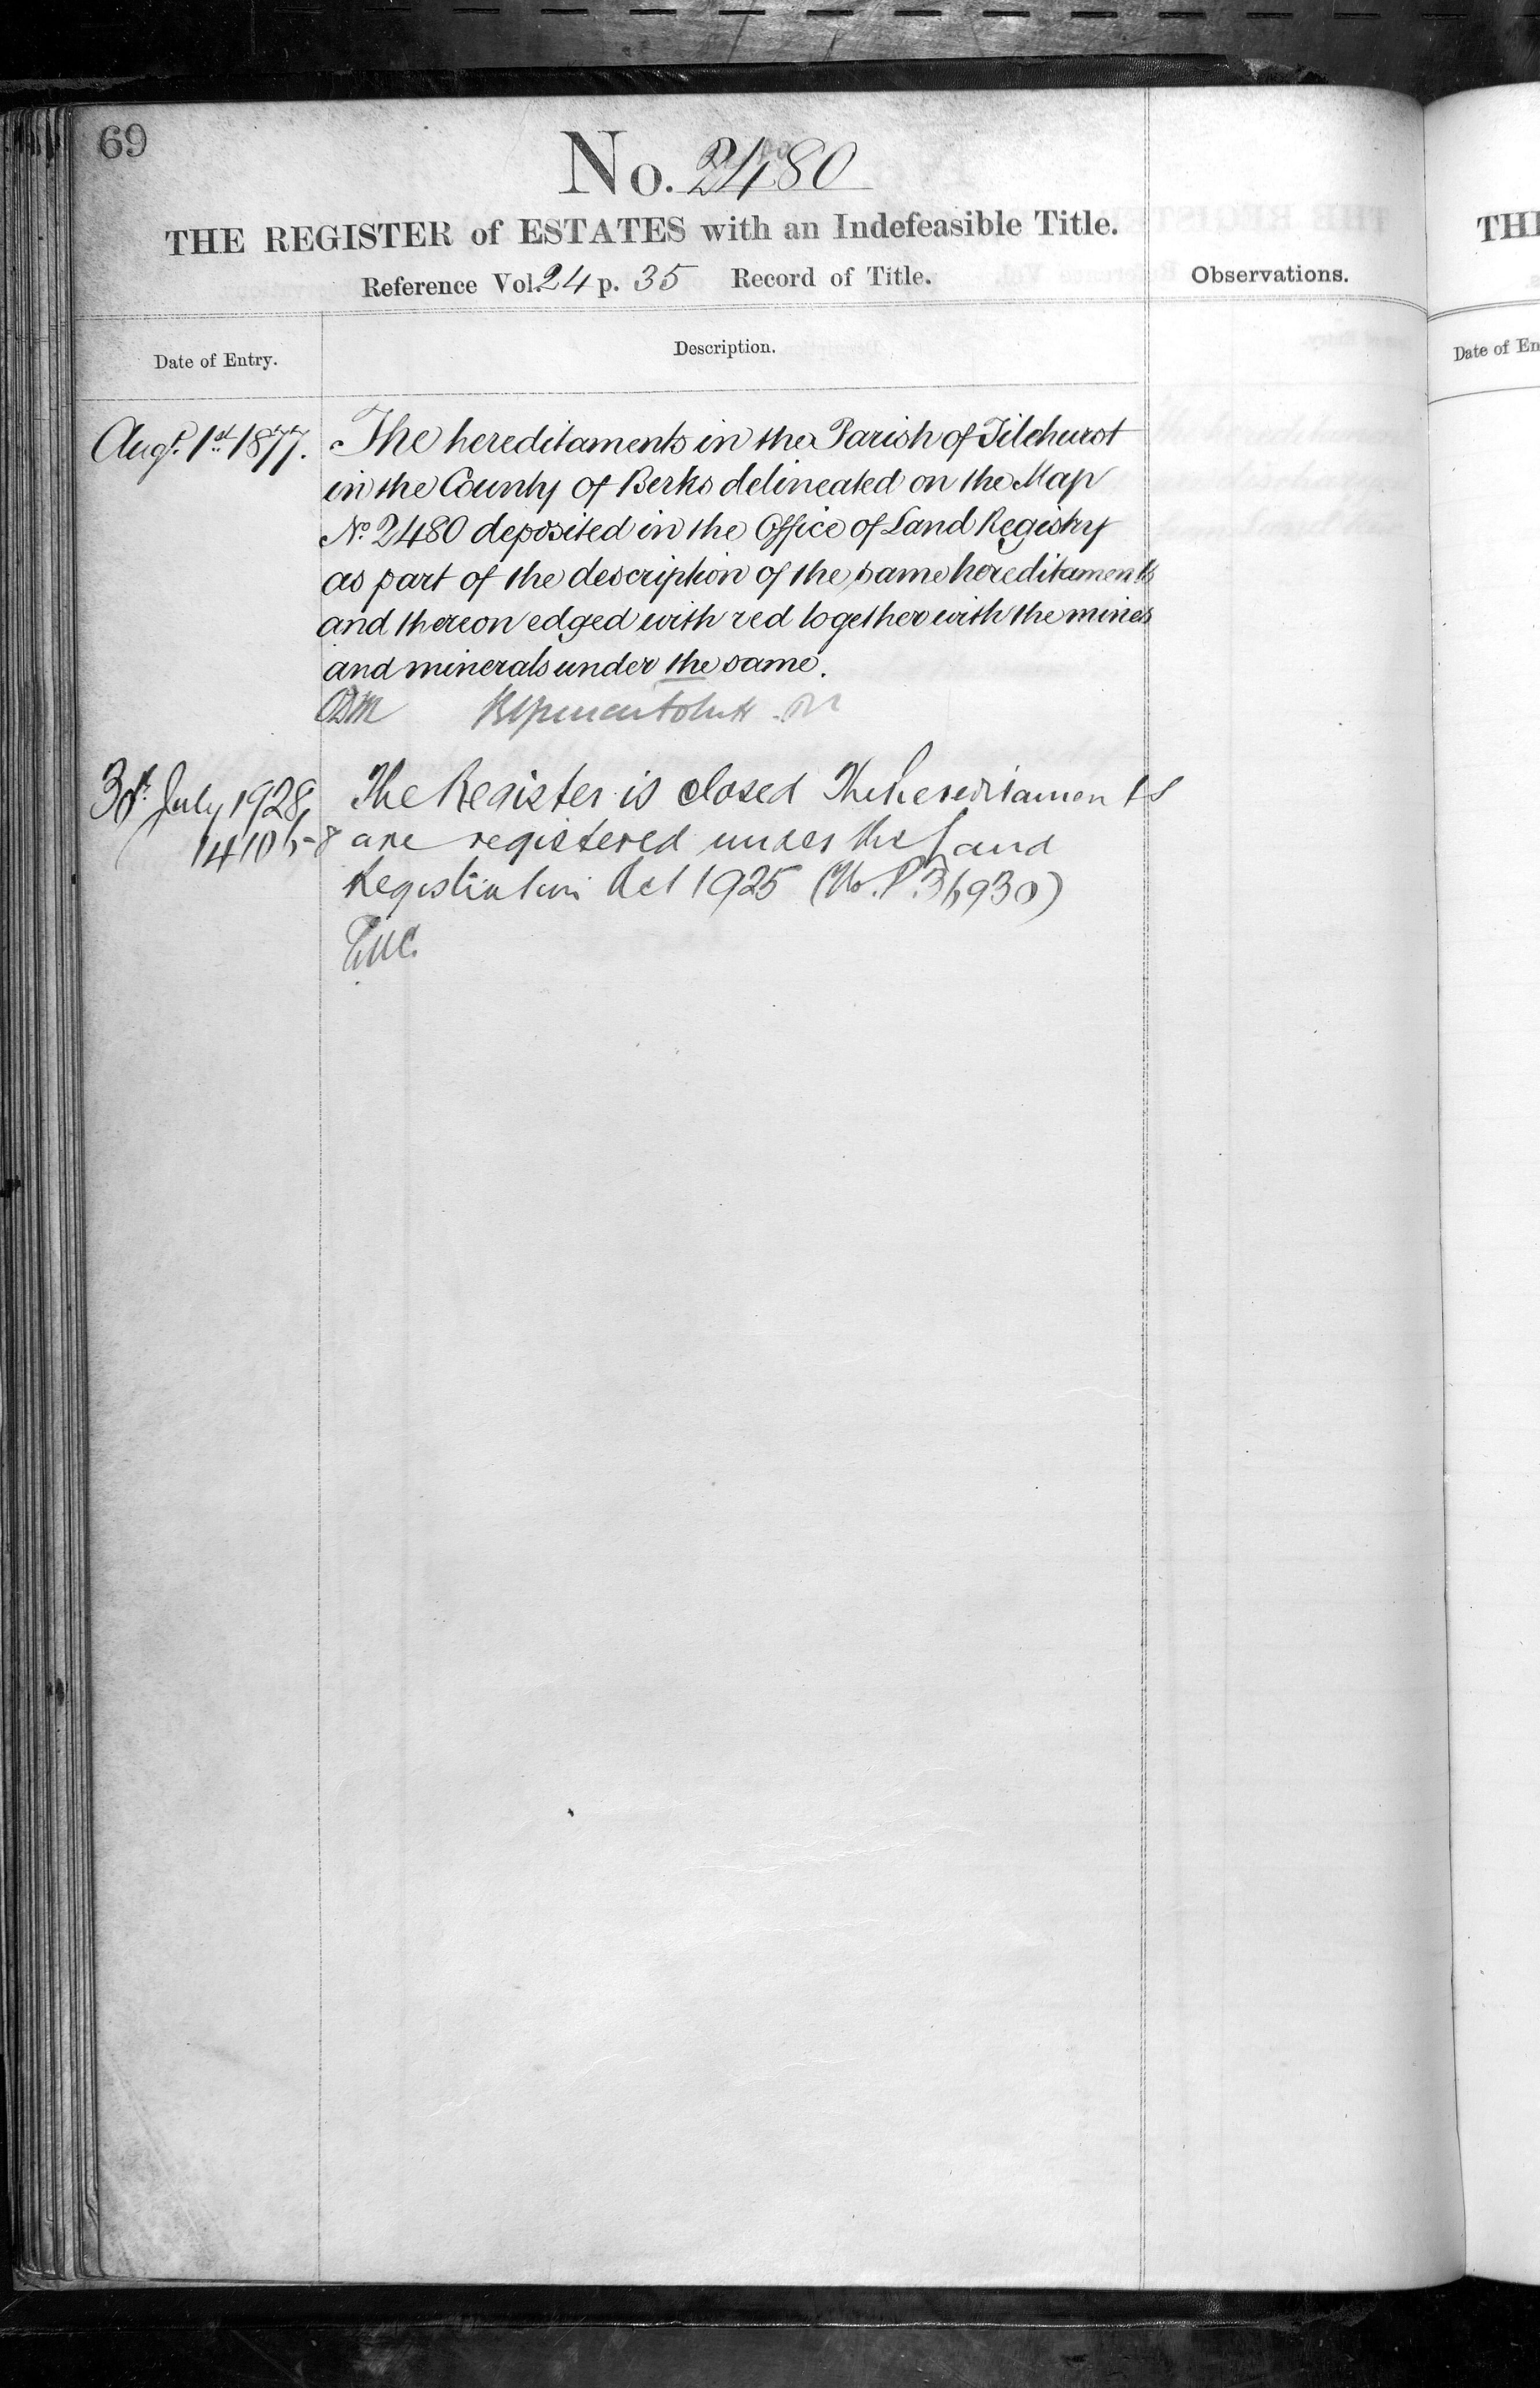 69
No. 2480
THE REGISTER of ESTATES with an Indefeasible Title.
Reference Vol. 24 p. 35 Record of Title.
Observations.
Date of Entry.
Description.
Augt. 1st 1877. The hereditaments in the Parish of Tilehurst
in the County of Berks delineated on the Map
No. 2480 deposited in the Office of Land Registry
as part of the description of the same hereditaments
and thereon edged with red together with the mines
and minerals under the same.
July 1928 The Register is closed The hereditaments
are registered under the Land
Registration Act 1925 (No. P.36930)
THE
Date of En